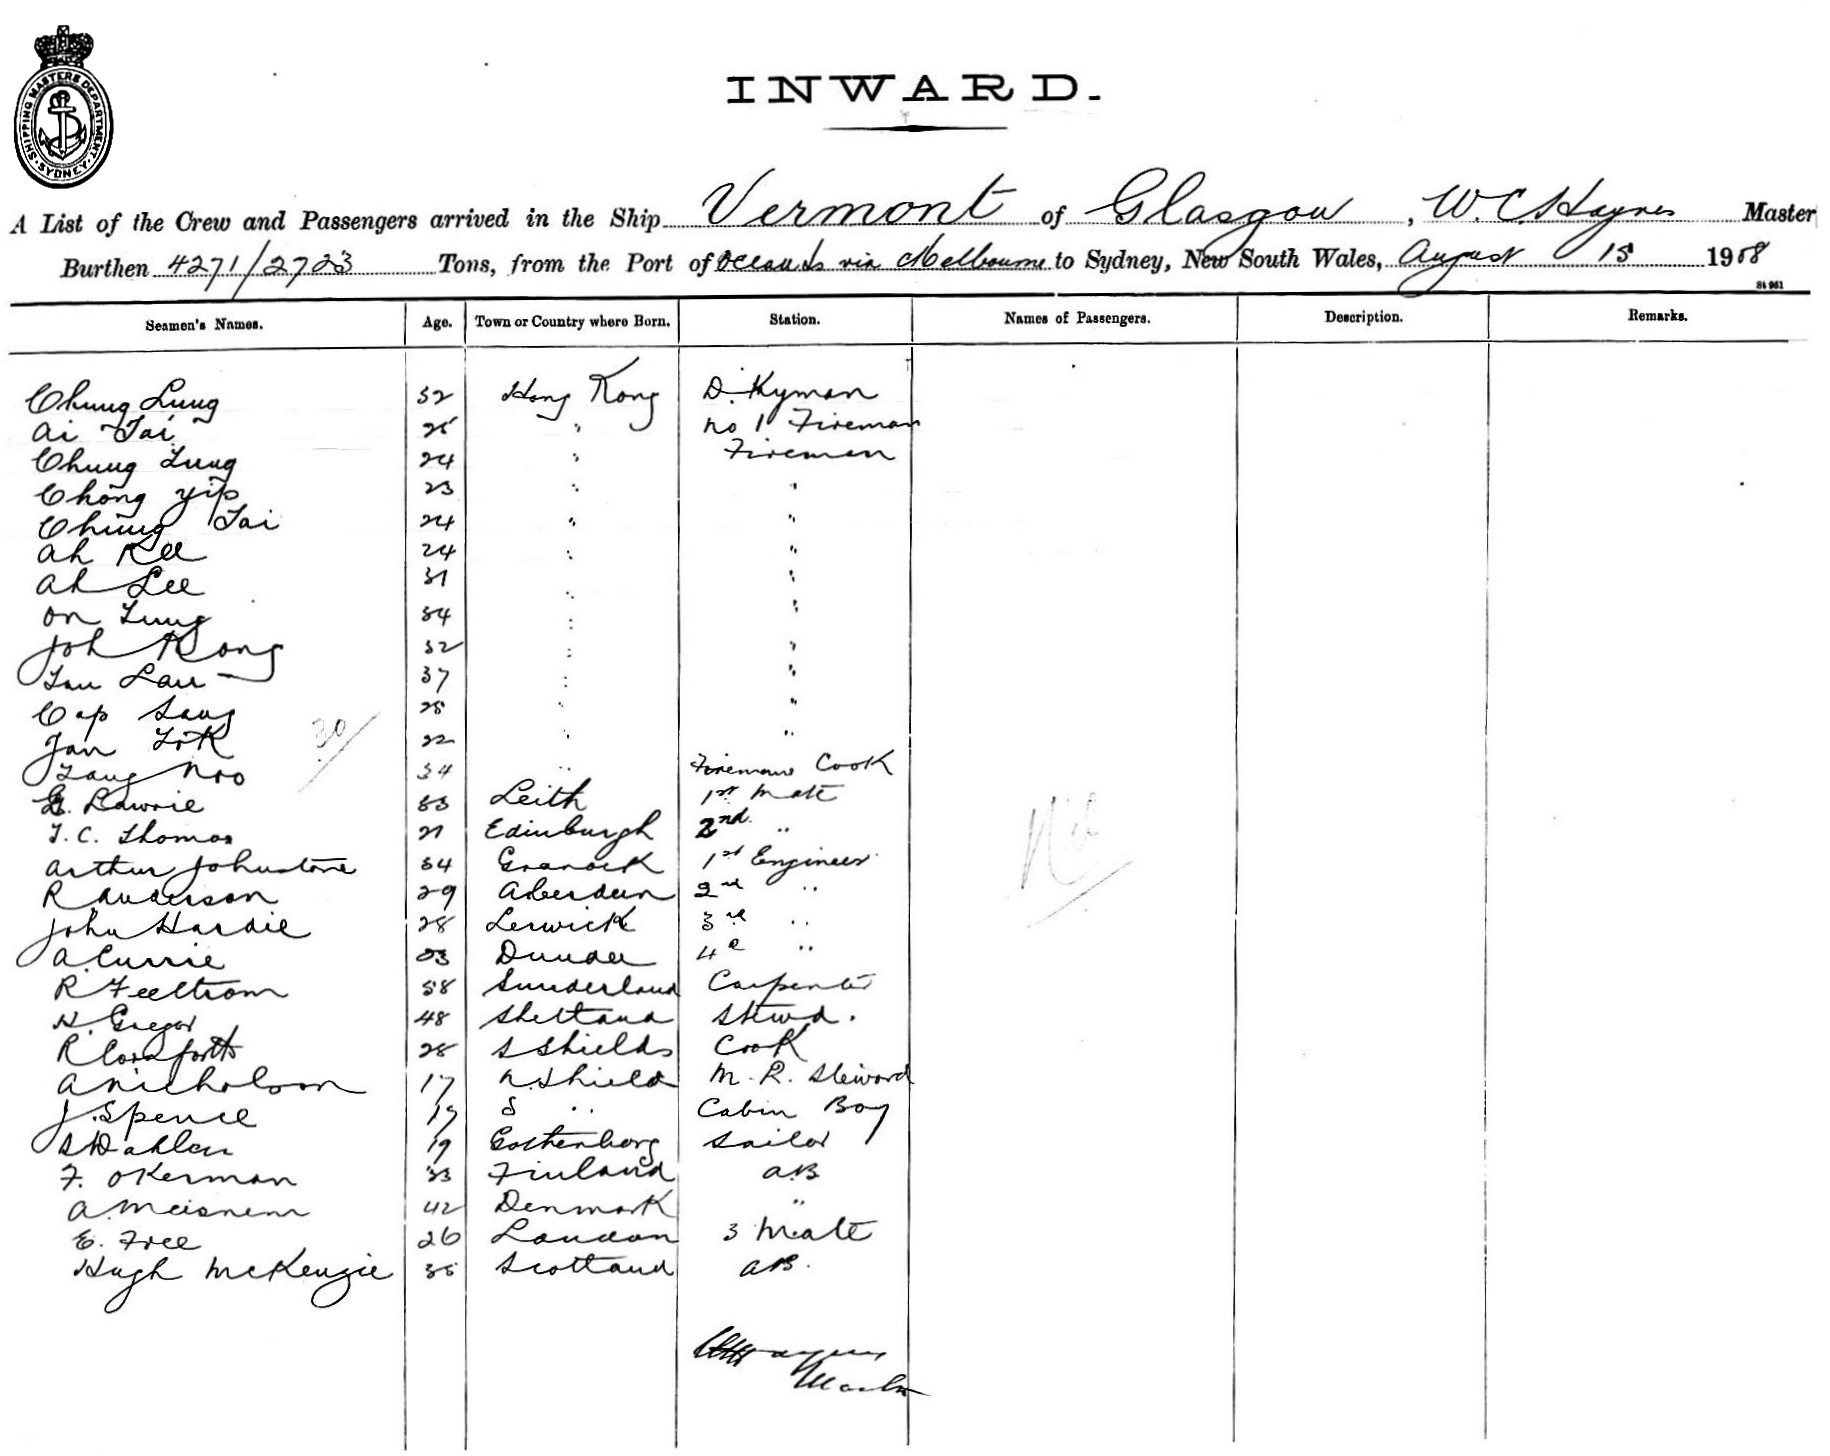 SHIPPING MASTERS DEPARTMENT. SYDNEY.
INWARD.
A List of the Crew and Passengers arrived in the Ship Vermont of Glasgow, W. C. Haynes Master
Burthen 4271/2723 Tons, from the Port of Ocean Is via Melbourne to Sydney, New South Wales, August 15 1908
St 961
Seamen's Names. Age. Town or Country where Born. Station. Names of Passengers. Description. Remarks.
Chung Lung 32 Hong Kong D. Kyman
Ai Tai 25 " No 1 Fireman
Chung Lung 24 " Fireman
Chong Yip 23 " "
Chung Tai 24 " "
Ah Kee 24 " "
Ah Lee 31 " "
On Lung 34 " "
Joh Kong 32 " "
Lau 37 " "
Cap Sang 28 " "
22 " "
34 " Firemans Cook
30
Lawrie 33 Leith 1st Mate
T. C. Thomas 21 Edinburgh 2nd "
Arthur Johnstone 34 Granock 1st Engineer
R Anderson 29 Aberdeen 2nd "
John Hardie 28 Lerwick 3rd "
A. Currie 23 Dundee 4th "
R. Feeltrom 58 Sunderland Carpenter
H. Gregor 48 Shetland Stewd.
R Cornforth 28 S Shields Cook
A Nicholson 17 N. Shield M. R. Steward
J. Spence 17 S " Cabin Boy
S Dahlen 19 Gothenborg Sailor
F. Okerman 33 Finland A.B
A. 42 Denmark "
E. Free 26 London 3 Mate
Hugh McKenzie 35 Scotland AB.
Nil
W C Haynes
Master